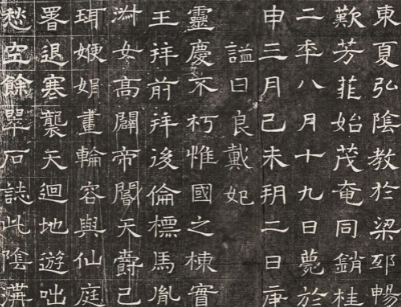 東夏弘陰教於梁邳暢
歎芳菲始茂奄同銷桂
二年八月十九日薨於
申三月己未朔二日庚
謚曰良戴妃
靈慶不朽惟國之棟實
王拜前拜後倫標馬胤
淑女高闢帝閽天爵己
珥娟畫輪容與仙庭
署退寒襲天迴地遊咄
愁空餘翠石誌此陰溝